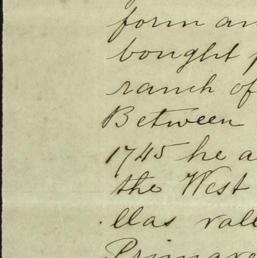 form an
bought p
ranch of
Between
1745 he a
the West
llas vall
Primave